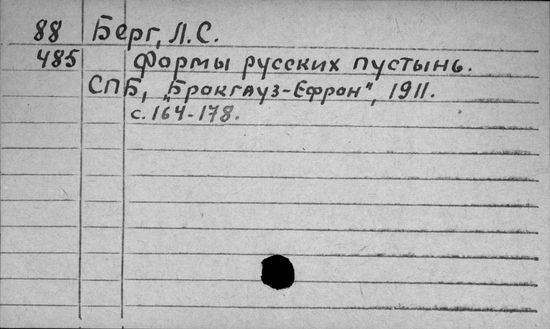 88 Берг, Л.С.
485 Формы русских пустынь.
СПБ, „Брокгауз-Ефрон", 1911.
с. 164-178.